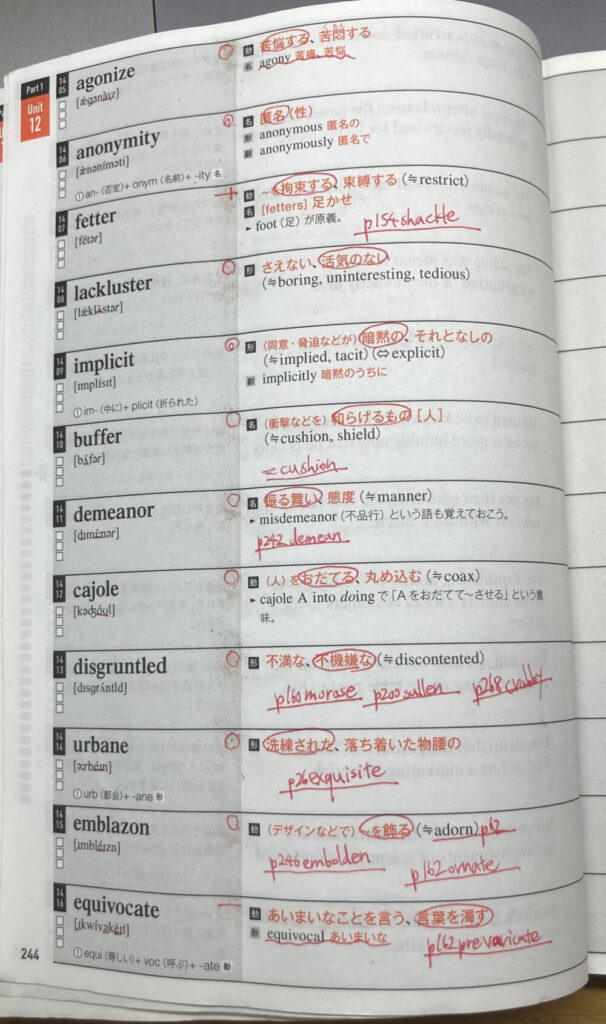 Part 1
Unit
12
1405
agonize
[ǽgənàɪz]
動 苦悩する、苦悶する
くもん
名 agony 苦痛、苦悩
1406
anonymity
[ænənímәti]
! an- (否定)+ onym (名前)+ -ity 名
名 匿名(性)
形 anonymous 匿名の
副 anonymously 匿名で
1407
fetter
[fétər]
動 ~を拘束する、束縛する (≒restrict)
名 [fetters] 足かせ
► foot (足) が原義。
p154 shackle
1408
lackluster
[lǽklʌ̀stər]
形 さえない、活気のない
(≒boring, uninteresting, tedious)
1409
implicit
[ɪmplísɪt]
! im- (中に)+ plicit (折られた)
形 (同意・脅迫などが) 暗黙の、それとなしの
(≒implied, tacit) (⇔explicit)
副 implicitly 暗黙のうちに
1410
buffer
[bʌ́fər]
名 (衝撃などを) 和らげるもの [人]
(≒cushion, shield)
≒ cushion
1411
demeanor
[dɪmíːnər]
名 振る舞い、態度 (≒manner)
► misdemeanor (不品行) という語も覚えておこう。
p242 demean
1412
cajole
[kədʒóul]
動 (人) をおだてる、丸め込む (≒coax)
► cajole A into doing で「A をおだてて~させる」という意
味。
1413
disgruntled
[dɪsgrʌ́ntld]
形 不満な、不機嫌な (≒discontented)
p160 morose p200 sullen p268 crabby
1414
urbane
[əːrbéɪn]
! urb (都会)+ -ane 形
形 洗練された、落ち着いた物腰の
p26 exquisite
1415
emblazon
[ɪmbléɪzn]
動 (デザインなどで) ~を飾る (≒adorn) p62
p246 embolden p162 ornate
1416
equivocate
[ɪkwívəkèɪt]
! equi (等しい)+ voc (呼ぶ)+ -ate 動
動 あいまいなことを言う、言葉を濁す
形 equivocal あいまいな
p162 prevaricate
244